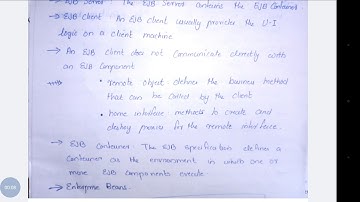 → EJB Server : The EJB Server contains the EJB Container
→ EJB Client : An EJB client usually provides the U-I
logic on a client machine
→ An EJB client does not communicate directly with
an EJB Component
→ • remote object defines the business method
that can be called by the client
• home interface methods to create and
destroy proxies for the remote interface.
→ EJB Container : The EJB specification defines a
Container as the environment in which one or
more EJB Components execute.
→ Enterprise Beans.